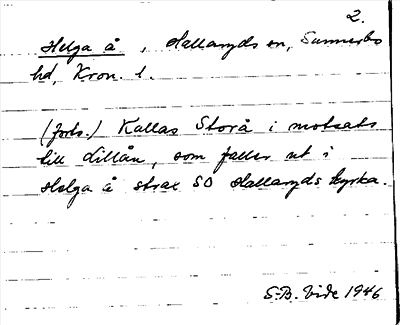 2.
Helga å, Hallaryds sn, Sunnerbo
hd, Kron. l.
(forts.) Kallas Storå i motsats
till Lillån, som faller ut i
Helga å strax SO Hallaryds kyrka.
S-B. Vide 1946